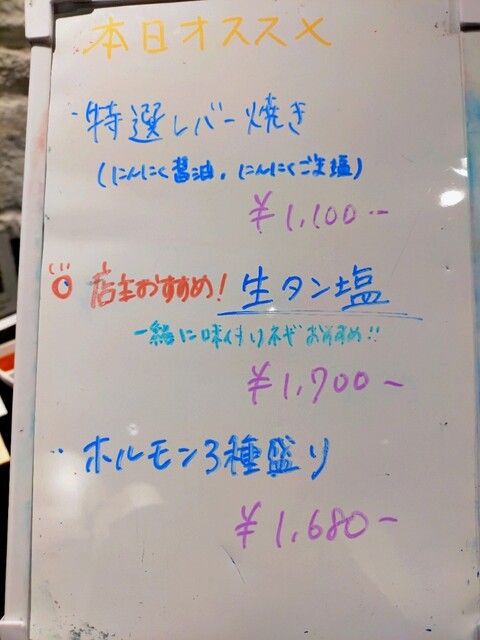 本日オススメ
・特選レバー焼き
(にんにく醤油、にんにくごま塩)
¥1,100-
店主おすすめ! 生タン塩
一緒に味付けネギおすすめ!!
¥1,700-
・ホルモン3種盛り
¥1,680-